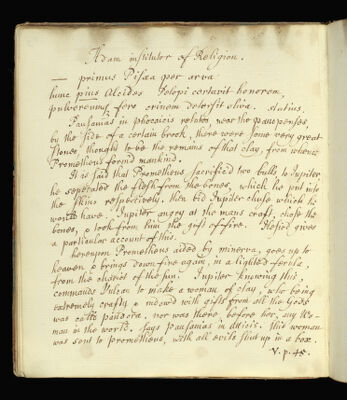 Adam institutor of Religion.
— primus Pisæa per arva
hunc pius Alcides Pelopi certavit honorem,
pulvereumq fero crinem detersit oliva. Statius.
Pausanias in phocaicis relates, near the panopenses
by the side of a certain brook, there were some very great
stones, thought to be the remains of that clay, from whence
Prometheus form'd mankind.
It is said that Prometheus sacrific'd two bulls to Jupiter
he seperated the flesh from the bones, which he put into
the skins respectively. then bid Jupiter chuse which he
would have. Jupiter angry at the mans craft, chose the
bones, & took from him the gift of fire. Hesiod gives
a particular account of this.
hereupon Prometheus aided by minerva, goes up to
heaven & brings down fire again, in a lighted ferula
from the chariot of the sun. Jupiter knowing this,
commands Vulcan to make a woman of clay, who being
extremely crafty & indow'd with gifts from all the Gods
was call'd pandora. nor was there, before her, any Wo-
man in the world. says Pausanias in Atticis. this woman
was sent to prometheus, with all evils shut up in a box.
V. p. 45.